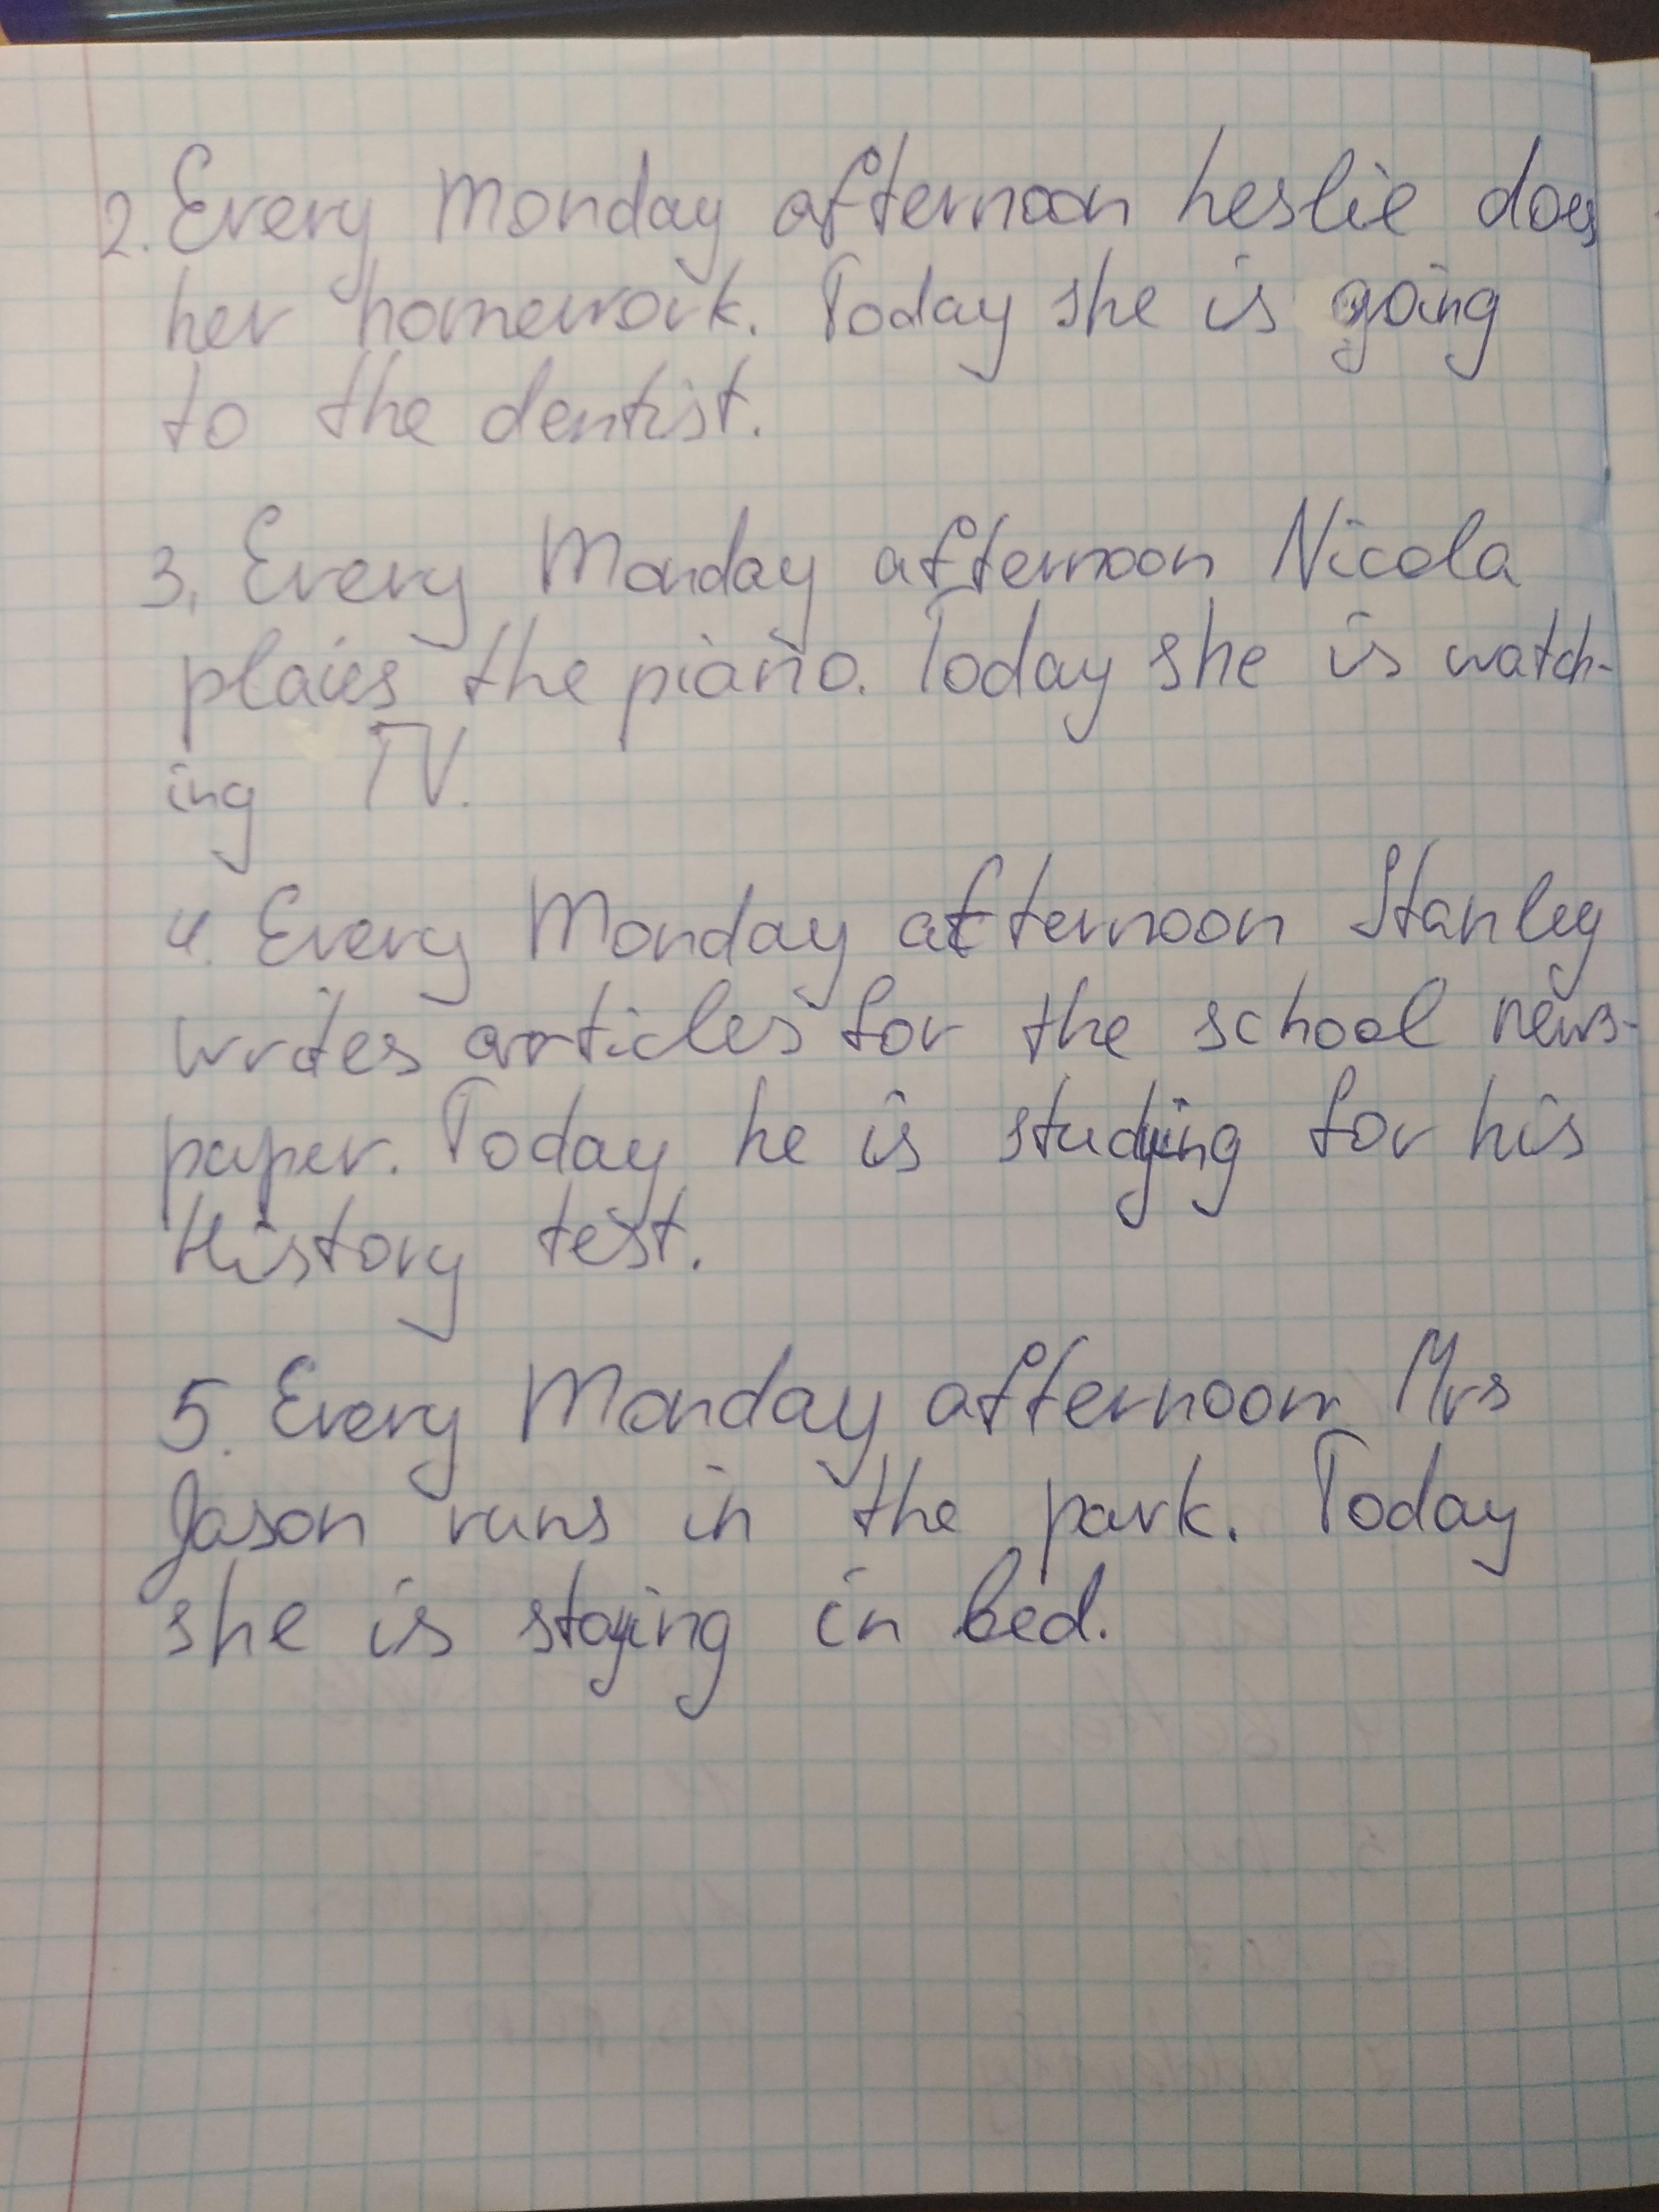 2. Every Monday afternoon Leslie does
her homework. Today she is going
to the dentist.
3. Every Monday afternoon Nicola
plaies the piano. Today she is watch-
ing TV.
4. Every Monday afternoon Stanley
writes articles for the school news-
paper. Today he is studying for his
History test.
5. Every Monday afternoon Mrs
Jason runs in the park. Today
she is staying in bed.